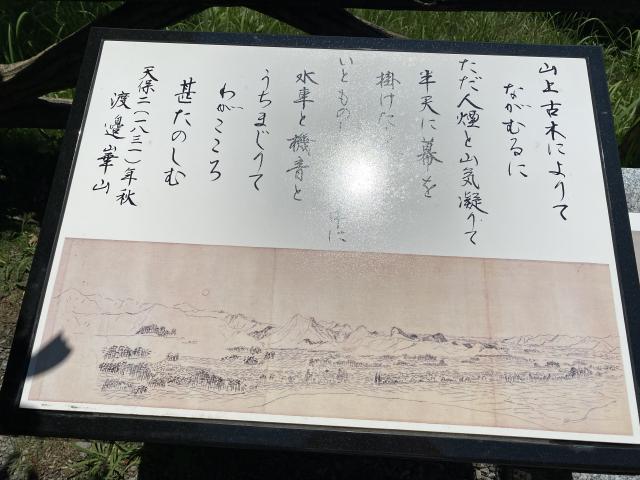 山上古木によりて
ながむるに
ただ人煙と山気凝りて
半天に幕を
掛けた
いともの
に
水車と機音と
うちまじりて
わがこころ
甚たのしむ
天保二(一八三一)年秋
渡邉崋山